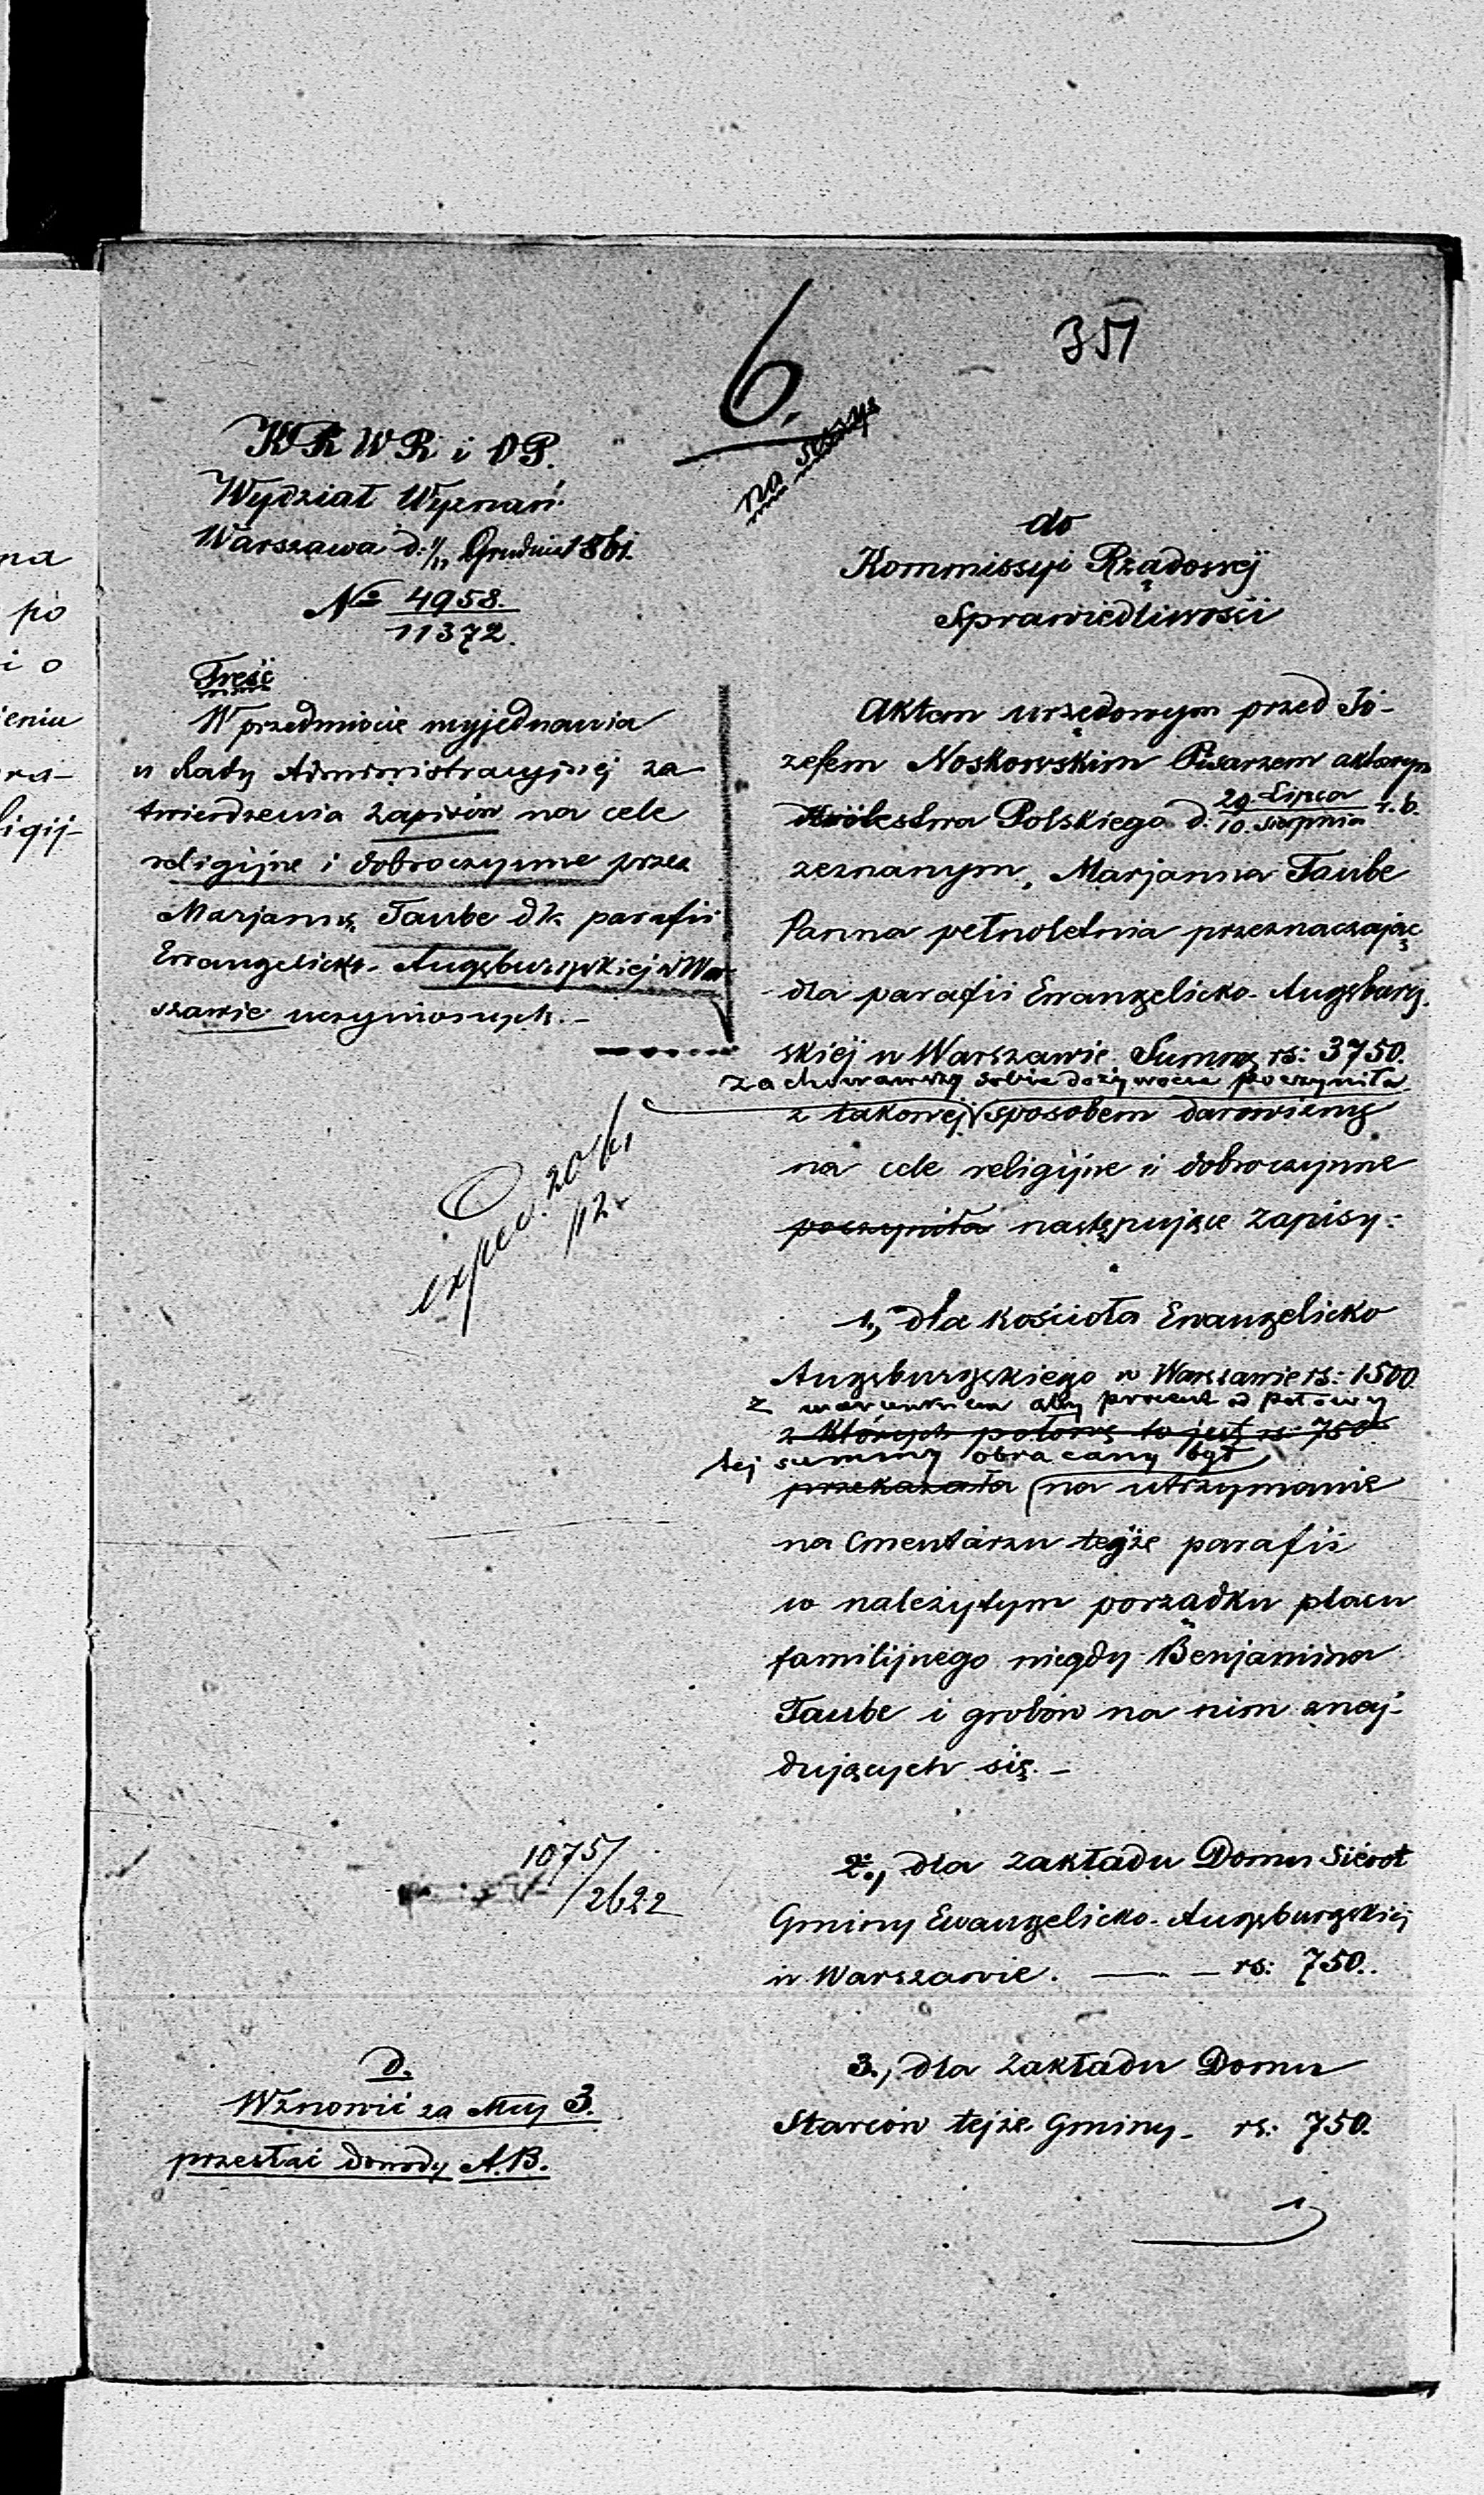 6.
351
na sessye
K R W R i O P.
Wydział Wyznań
Warszawa d: Grudnia 1861.
No 4958.
11372.
Treść
W przedmiocie wyjednania
u Rady Administracyjnéj za
twierdzenia zapisów na cele
religijne i dobroczynne przez
Marjannę Taube dla parafii
Ewangelicko-Augsburgskiej w War
szawie uczynionych.-
exped. 20/12
10757/2622
d.
Wznowić za Mcy 3.
przesłać dowody A.B.
do
Kommissyi Rządowéj
Sprawiedliwości
Aktem urzędowym przed Jó-
zefem Noskowskim Pisarzem aktowym
Królestwa Polskiego d. 29 Lipca / 10. Sierpnia r. b.
zeznanym, Marjanna Taube
Panna pełnoletnia przeznaczając
dla parafii Ewangelicko-Augsburg.
skiéj w Warszawie Summę rs: 3750.
zachowawszy sobie dożywocie poczyniła
z takowéj sposobem darowizny
na cele religijne i dobroczynne
poczyniła następujące zapisy:
1., dla kościoła Ewangelicko
Augsburgskiego w Warszawie rs: 1500.
z warunkiem aby procent od połowy
z których połowę to jest rs: 750
tej summy obracany był
przekazała na utrzymanie
na Cmentarzu tejże parafii
w należytym porządku placu
familijnego niegdy Benjamina
Taube i grobów na nim znaj-
dujących się.-
2., dla zakładu Domu Siérot
Gminy Ewangelicko-Augsburgskiej
w Warszawie. — – rs: 750.
3., dla zakładu Domu
Starców tejże Gminy- rs: 750.